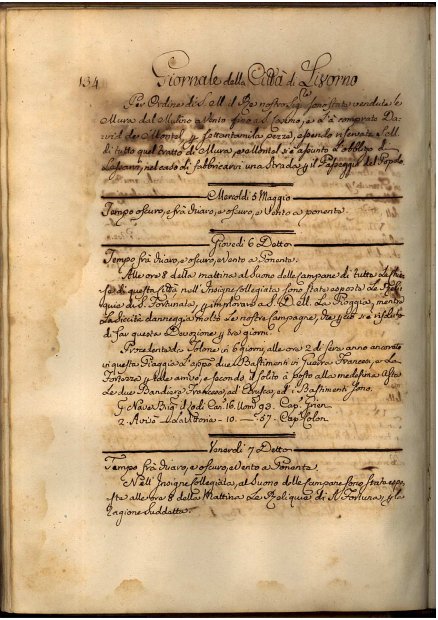 134 Giornale della Città di Livorno
Per Ordine di S. M. il Re nostro Sig.re sono state vendute le
Mura dal Mulino a Vento fino a S. Cosimo, e l'à comprate Da-
vid de Montel p settantamila pezze, essendo riservata S. M.
di tutto quel tratto di Mura, e Montel s'è assunto l'obbligo di
nel caso di fabbricarvi una Strada p il Passeggio del Popolo.
Mercoldi 5 Maggio
Tempo oscuro, e frà diiaro, e oscuro, e Vento a ponente.
Giovedi 6 Detto
Tempo frà diiaro, e oscuro, e Vento a Ponente.
Alle ore 8 della mattina al Suono delle campane di tutte le chie-
se di questa Città nell'Insigne Collegiata sono state esposte le Reli-
quie di S. Fortunata, p implorare a S. D. M. La Pioggia, mentre
La Siccità danneggia molto le nostre Campagne, che p ciò s'è risoluto
di far questa Devozione p tre giorni.
Procedente da Tolone in 6 giorni, alle ore 2 di sera anno ancorato
in questa Piaggia d'appo due Bastimenti in Guerra Francesi, e La
Fortezza p tale arrivo, e secondo il solito à posto alla medesima Asta
Le due Bandiere Francese, ed Etrusca, e i Bastimenti sono.
Nave Brig il Can. 16. Uom. 93. Cap.
2. Aviso La 10. — 57. Cap.
Venerdi 7 Detto
Tempo frà diiaro, e oscuro, e Vento a Ponente.
Nell'Insigne Collegiata, al Suono delle campane sono state espo-
ste alle ore 8 della Mattina Le Reliquie di S. Fortunata, p la
ragione suddetta.